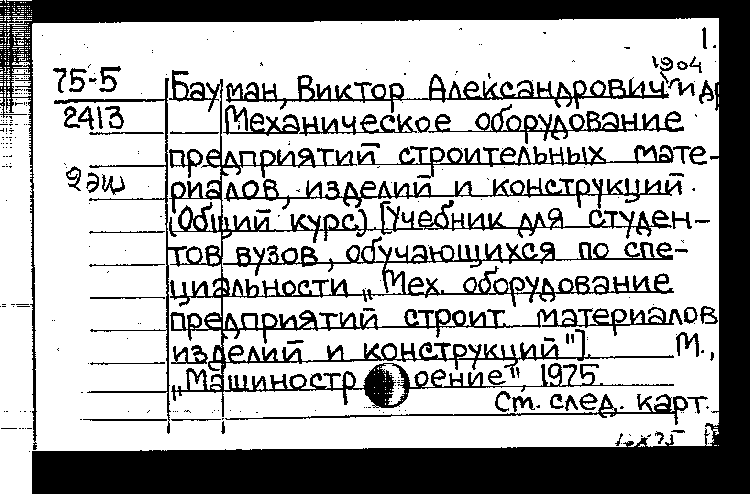 1.
1904
75-5 Бауман, Виктор Александрович и др
2413 Механическое оборудование
предприятий строительных мате-
2эш риалов, изделий и конструкций.
(Общий курс) [Учебник для студен-
тов вузов, обучающихся по спе-
циальности „Мех. оборудование
предприятий строит. материалов
изделий и конструкций"]. М.,
„Машиностроение", 1975.
Ст. след. карт.